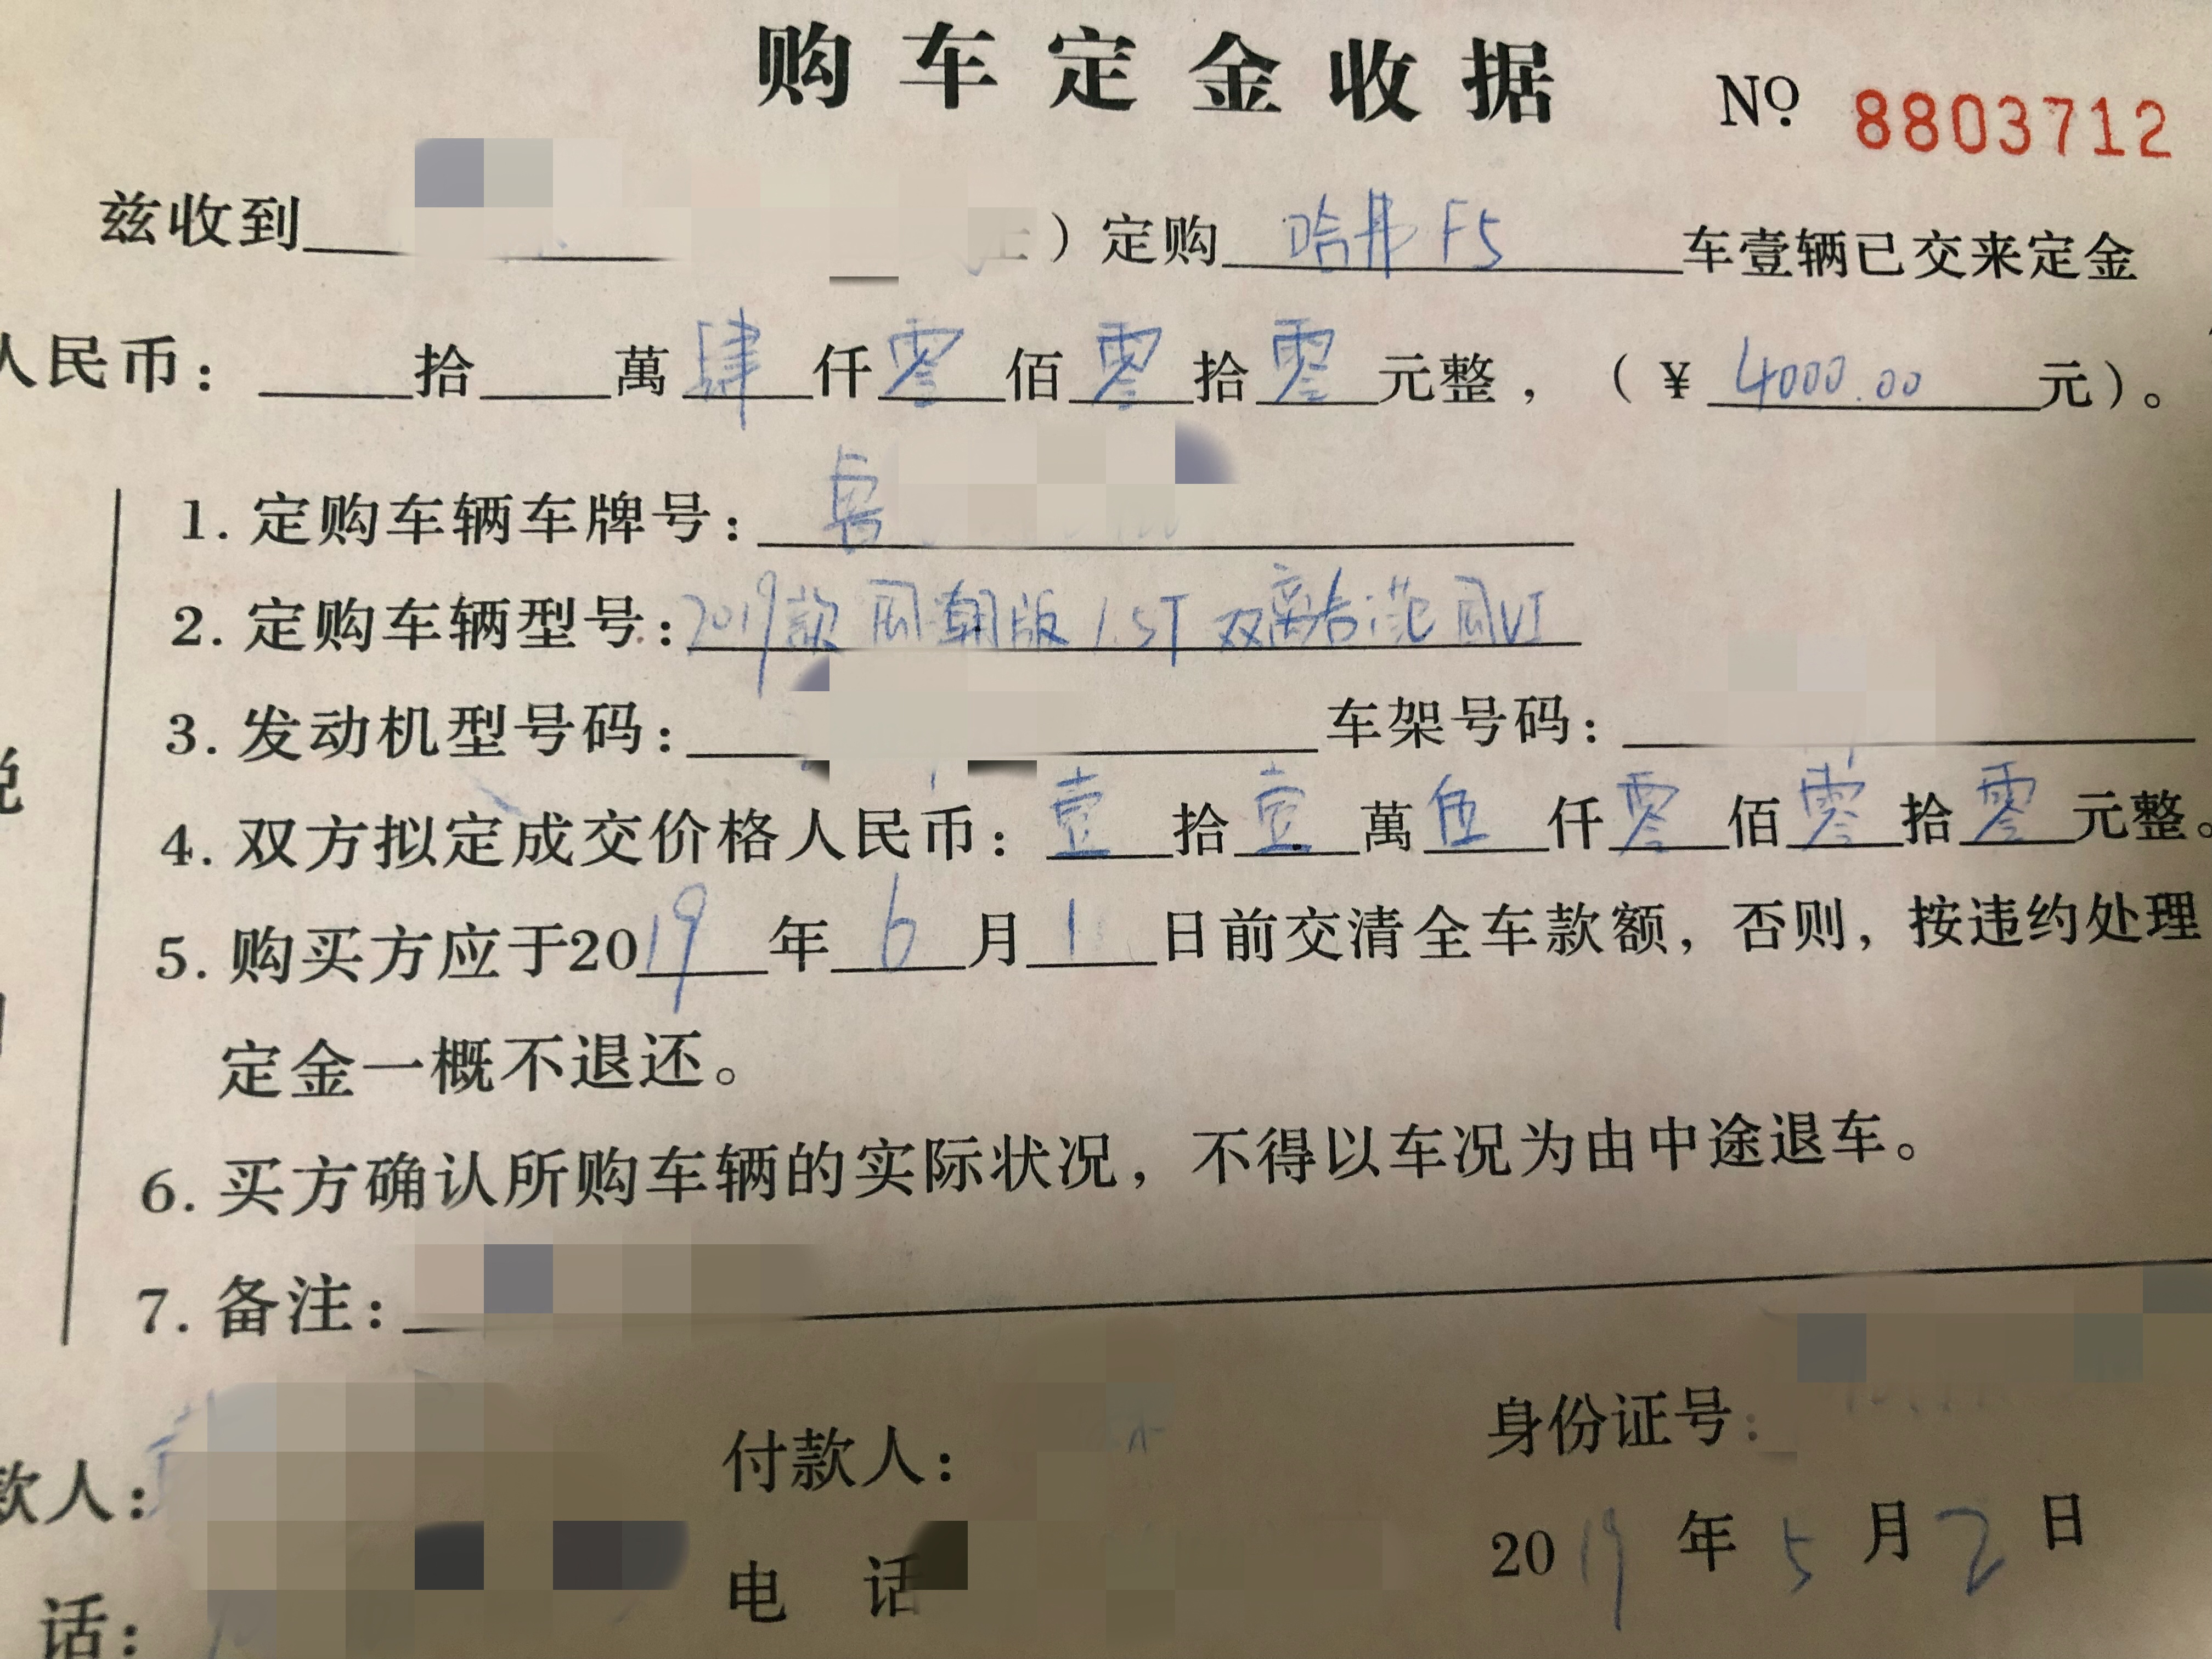 购车定金收据 № 8803712
兹收到 ）定购 哈弗 F5 车壹辆已交来定金
人民币： 拾 萬 肆 仟 零 佰 零 拾 零 元整，（¥ 4000.00 元）。
1. 定购车辆车牌号：
2. 定购车辆型号：2019款 国潮版 1.5T 双离合 国VI
3. 发动机型号码： 车架号码：
4. 双方拟定成交价格人民币：壹 拾 壹 萬 伍 仟 零 佰 零 拾 零 元整。
5. 购买方应于2019 年 6 月 1 日前交清全车款额，否则，按违约处理
定金一概不退还。
6. 买方确认所购车辆的实际状况，不得以车况为由中途退车。
7. 备注：
款人： 付款人： 身份证号：
话： 电 话 2019 年 5 月 2 日